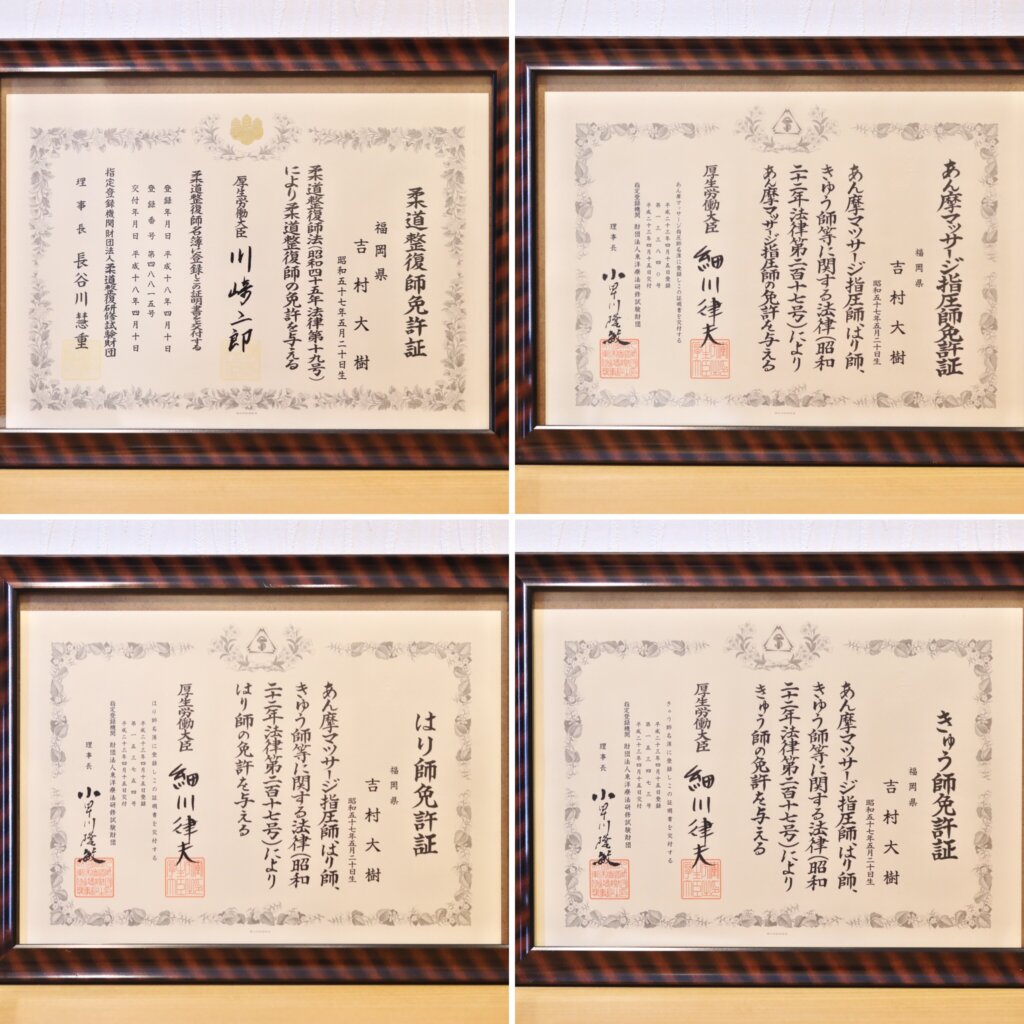 柔道整復師免許証
福岡県
吉村大樹
昭和五十七年五月二十日生
柔道整復師法(昭和四十五年法律第十九号)
により柔道整復師の免許を与える
厚生労働大臣 川崎二郎
柔道整復師名簿に登録しこの証明書を交付する
登録年月日 平成十八年四月十日
登録番号 第四八八一五号
交付年月日 平成十八年四月十日
指定登録機関財団法人柔道整復研修試験財団
理事長 長谷川慧重
あん摩マッサージ指圧師免許証
福岡県
吉村大樹
昭和五十七年五月二十日生
あん摩マッサージ指圧師、はり師、
きゆう師等に関する法律(昭和
二十二年法律第二百十七号)により
あん摩マッサージ指圧師の免許を与える
厚生労働大臣 細川律夫
あん摩マッサージ指圧師名簿に登録しこの証明書を交付する
平成二十三年四月十五日登録
平成二十三年四月十五日交付
指定登録機関 財団法人東洋療法研修試験財団
理事長 小早川隆敏
はり師免許証
福岡県
吉村大樹
昭和五十七年五月二十日生
あん摩マツサージ指圧師、はり師、
きゆう師等に関する法律(昭和
二十二年法律第二百十七号)により
はり師の免許を与える
厚生労働大臣 細川律夫
はり師名簿に登録しこの証明書を交付する
平成二十三年四月十五日登録
平成二十三年四月十五日交付
指定登録機関 財団法人東洋療法研修試験財団
理事長 小早川隆敏
きゅう師免許証
福岡県
吉村大樹
昭和五十七年五月二十日生
あん摩マツサージ指圧師、はり師、
きゆう師等に関する法律(昭和
二十二年法律第二百十七号)により
きゅう師の免許を与える
厚生労働大臣 細川律夫
きゅう師名簿に登録しこの証明書を交付する
平成二十三年四月十五日登録
平成二十三年四月十五日交付
指定登録機関 財団法人東洋療法研修試験財団
理事長 小早川隆敏